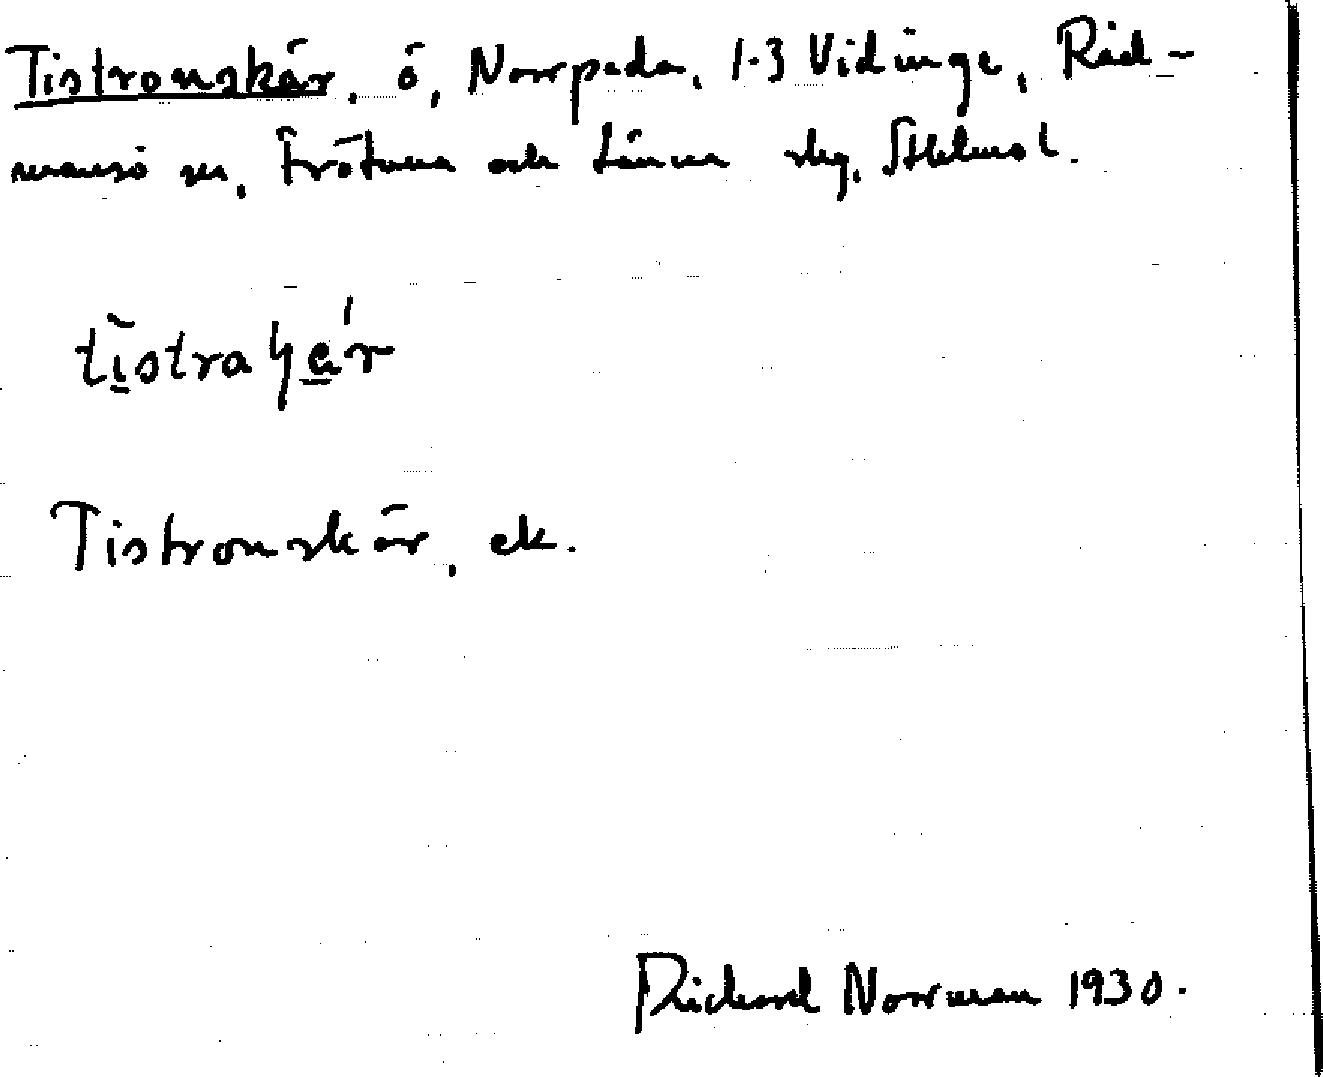 Tistronskär, ö, Norrpada, 1-3 Vidinge, Råd-
mansö sn, Frötuna och Länna skg, Sthlms l.
Tistronskär, ek.
Richard Norrman 1930.